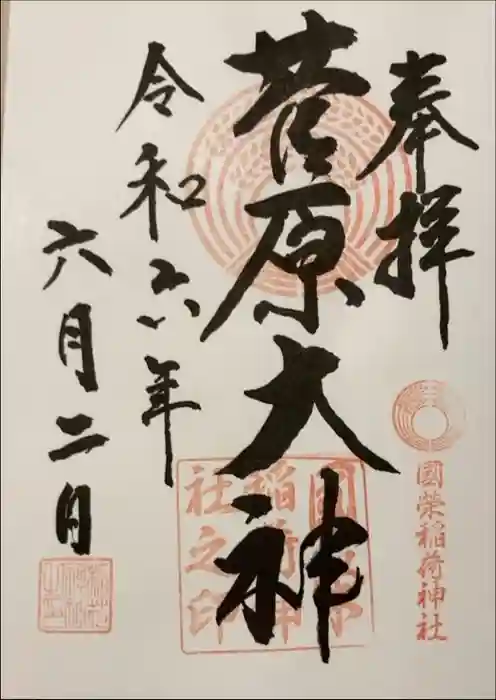 奉拝
國榮稲荷神社
菅原大神
國榮
稲荷神
社之印
令和六年
六月二日